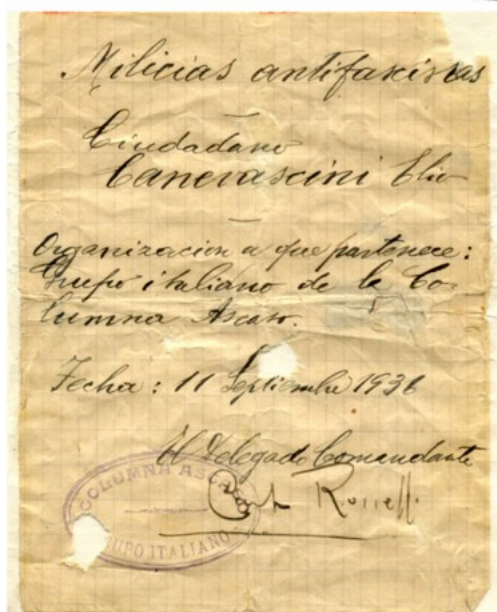 Milicias antifascistas
Ciudadano
Canevascini Elio
Organizacion a que partenece:
Grupo italiano de la Co-
lumna Ascaso.
Fecha: 11 Septiembre 1936
El Delegado Comandante
Carlo Rosselli
COLUMNA ASCASO
GRUPO ITALIANO